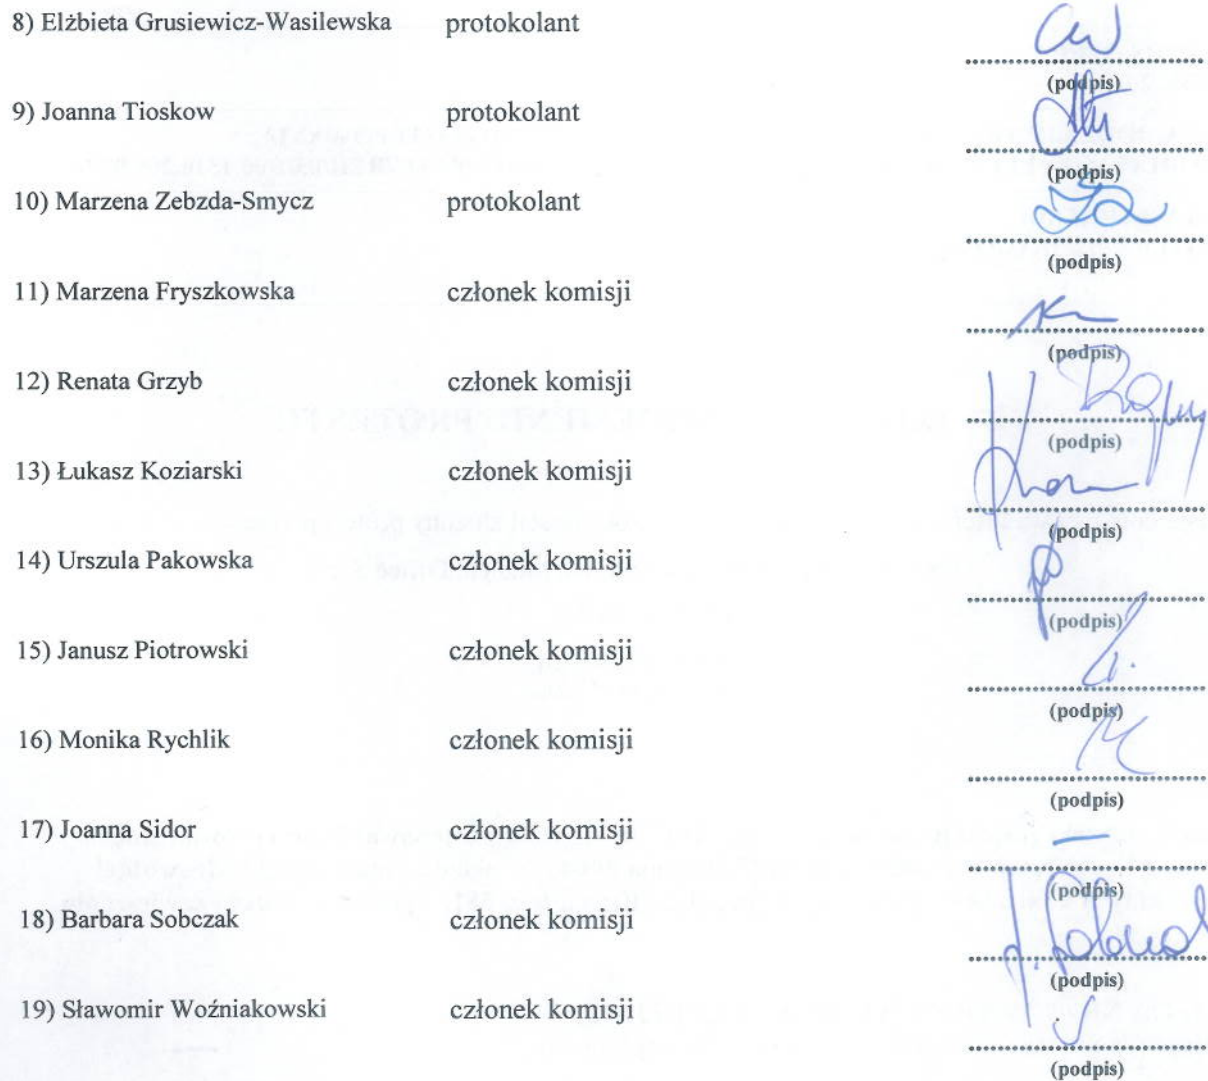 8) Elżbieta Grusiewicz-Wasilewska protokolant
(podpis)
9) Joanna Tioskow protokolant
(podpis)
10) Marzena Zebzda-Smycz protokolant
(podpis)
11) Marzena Fryszkowska członek komisji
(podpis)
12) Renata Grzyb członek komisji
(podpis)
13) Łukasz Koziarski członek komisji
(podpis)
14) Urszula Pakowska członek komisji
(podpis)
15) Janusz Piotrowski członek komisji
(podpis)
16) Monika Rychlik członek komisji
(podpis)
17) Joanna Sidor członek komisji
(podpis)
18) Barbara Sobczak członek komisji
(podpis)
19) Sławomir Woźniakowski członek komisji
(podpis)